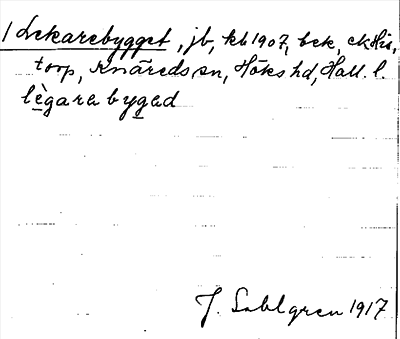 / Lekarebygget, jb, kb 1907, bek, ek His,
torp, Knäreds sn, Höks hd, Hall. l.
lègara bygəd
J. Sahlgren 1917